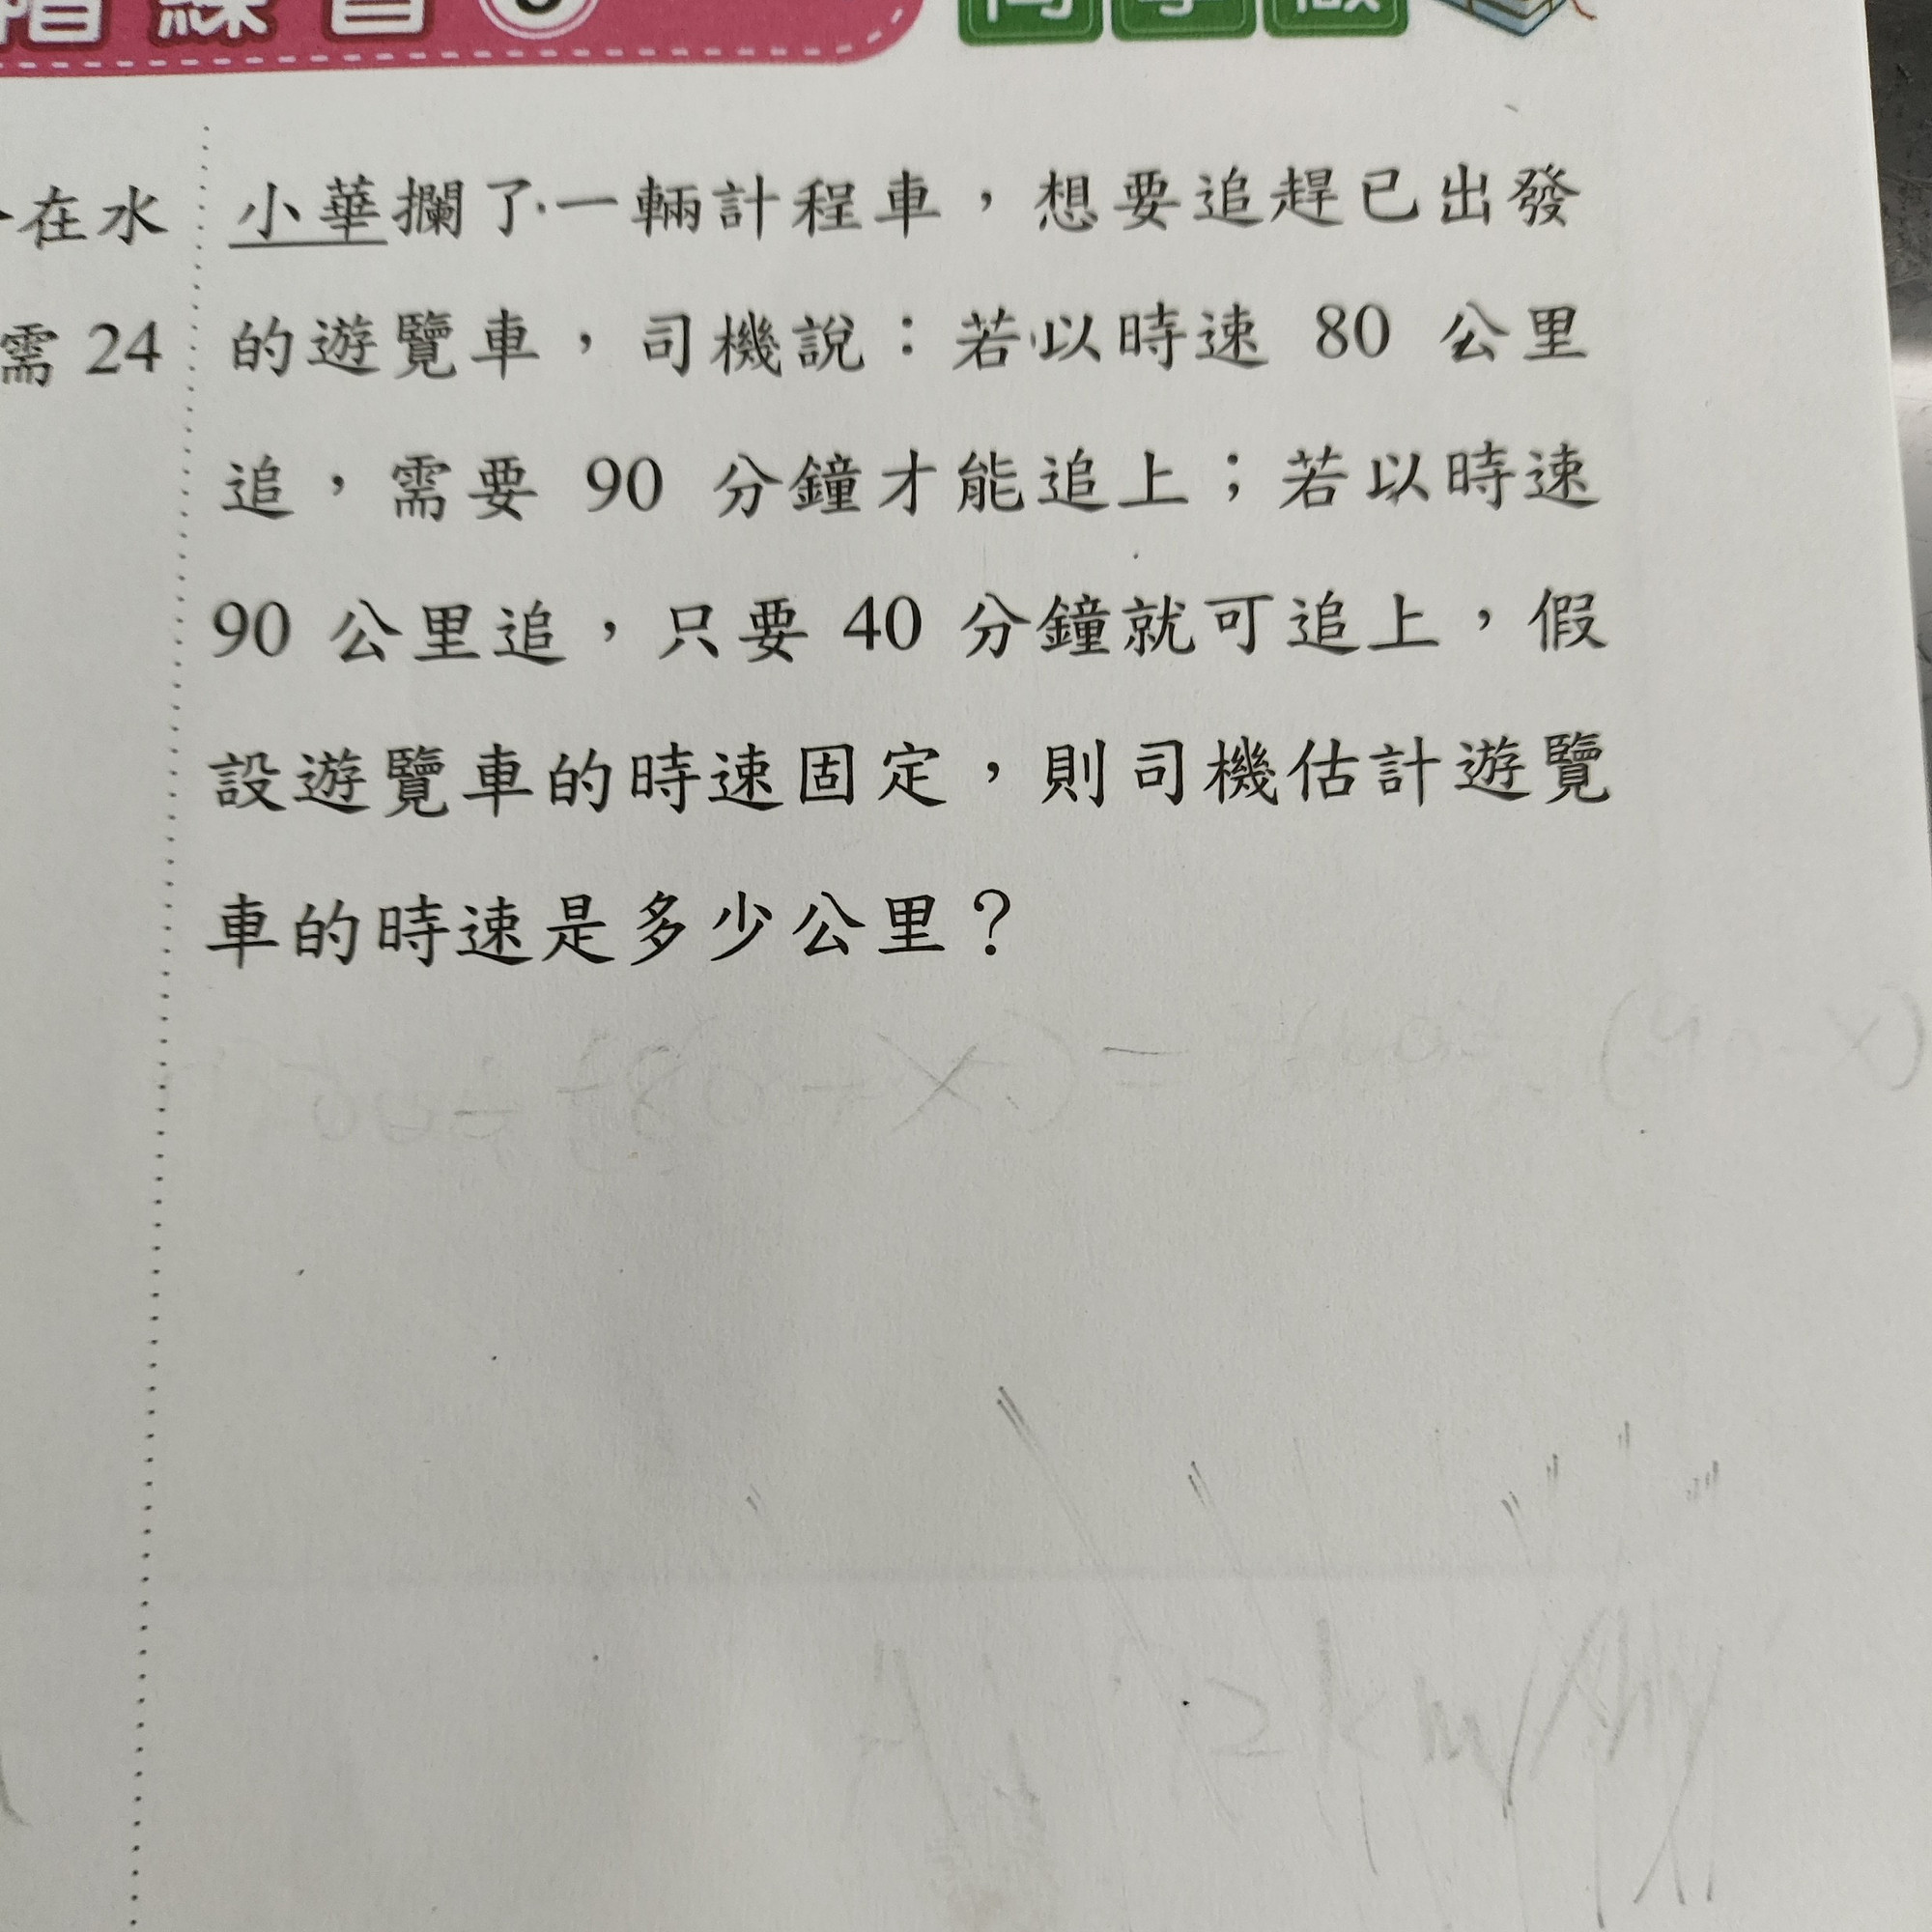 練習
在水
需 24
小華攔了一輛計程車，想要追趕已出發
的遊覽車，司機說：若以時速 80 公里
追，需要 90 分鐘才能追上；若以時速
90 公里追，只要 40 分鐘就可追上，假
設遊覽車的時速固定，則司機估計遊覽
車的時速是多少公里？
2km/h